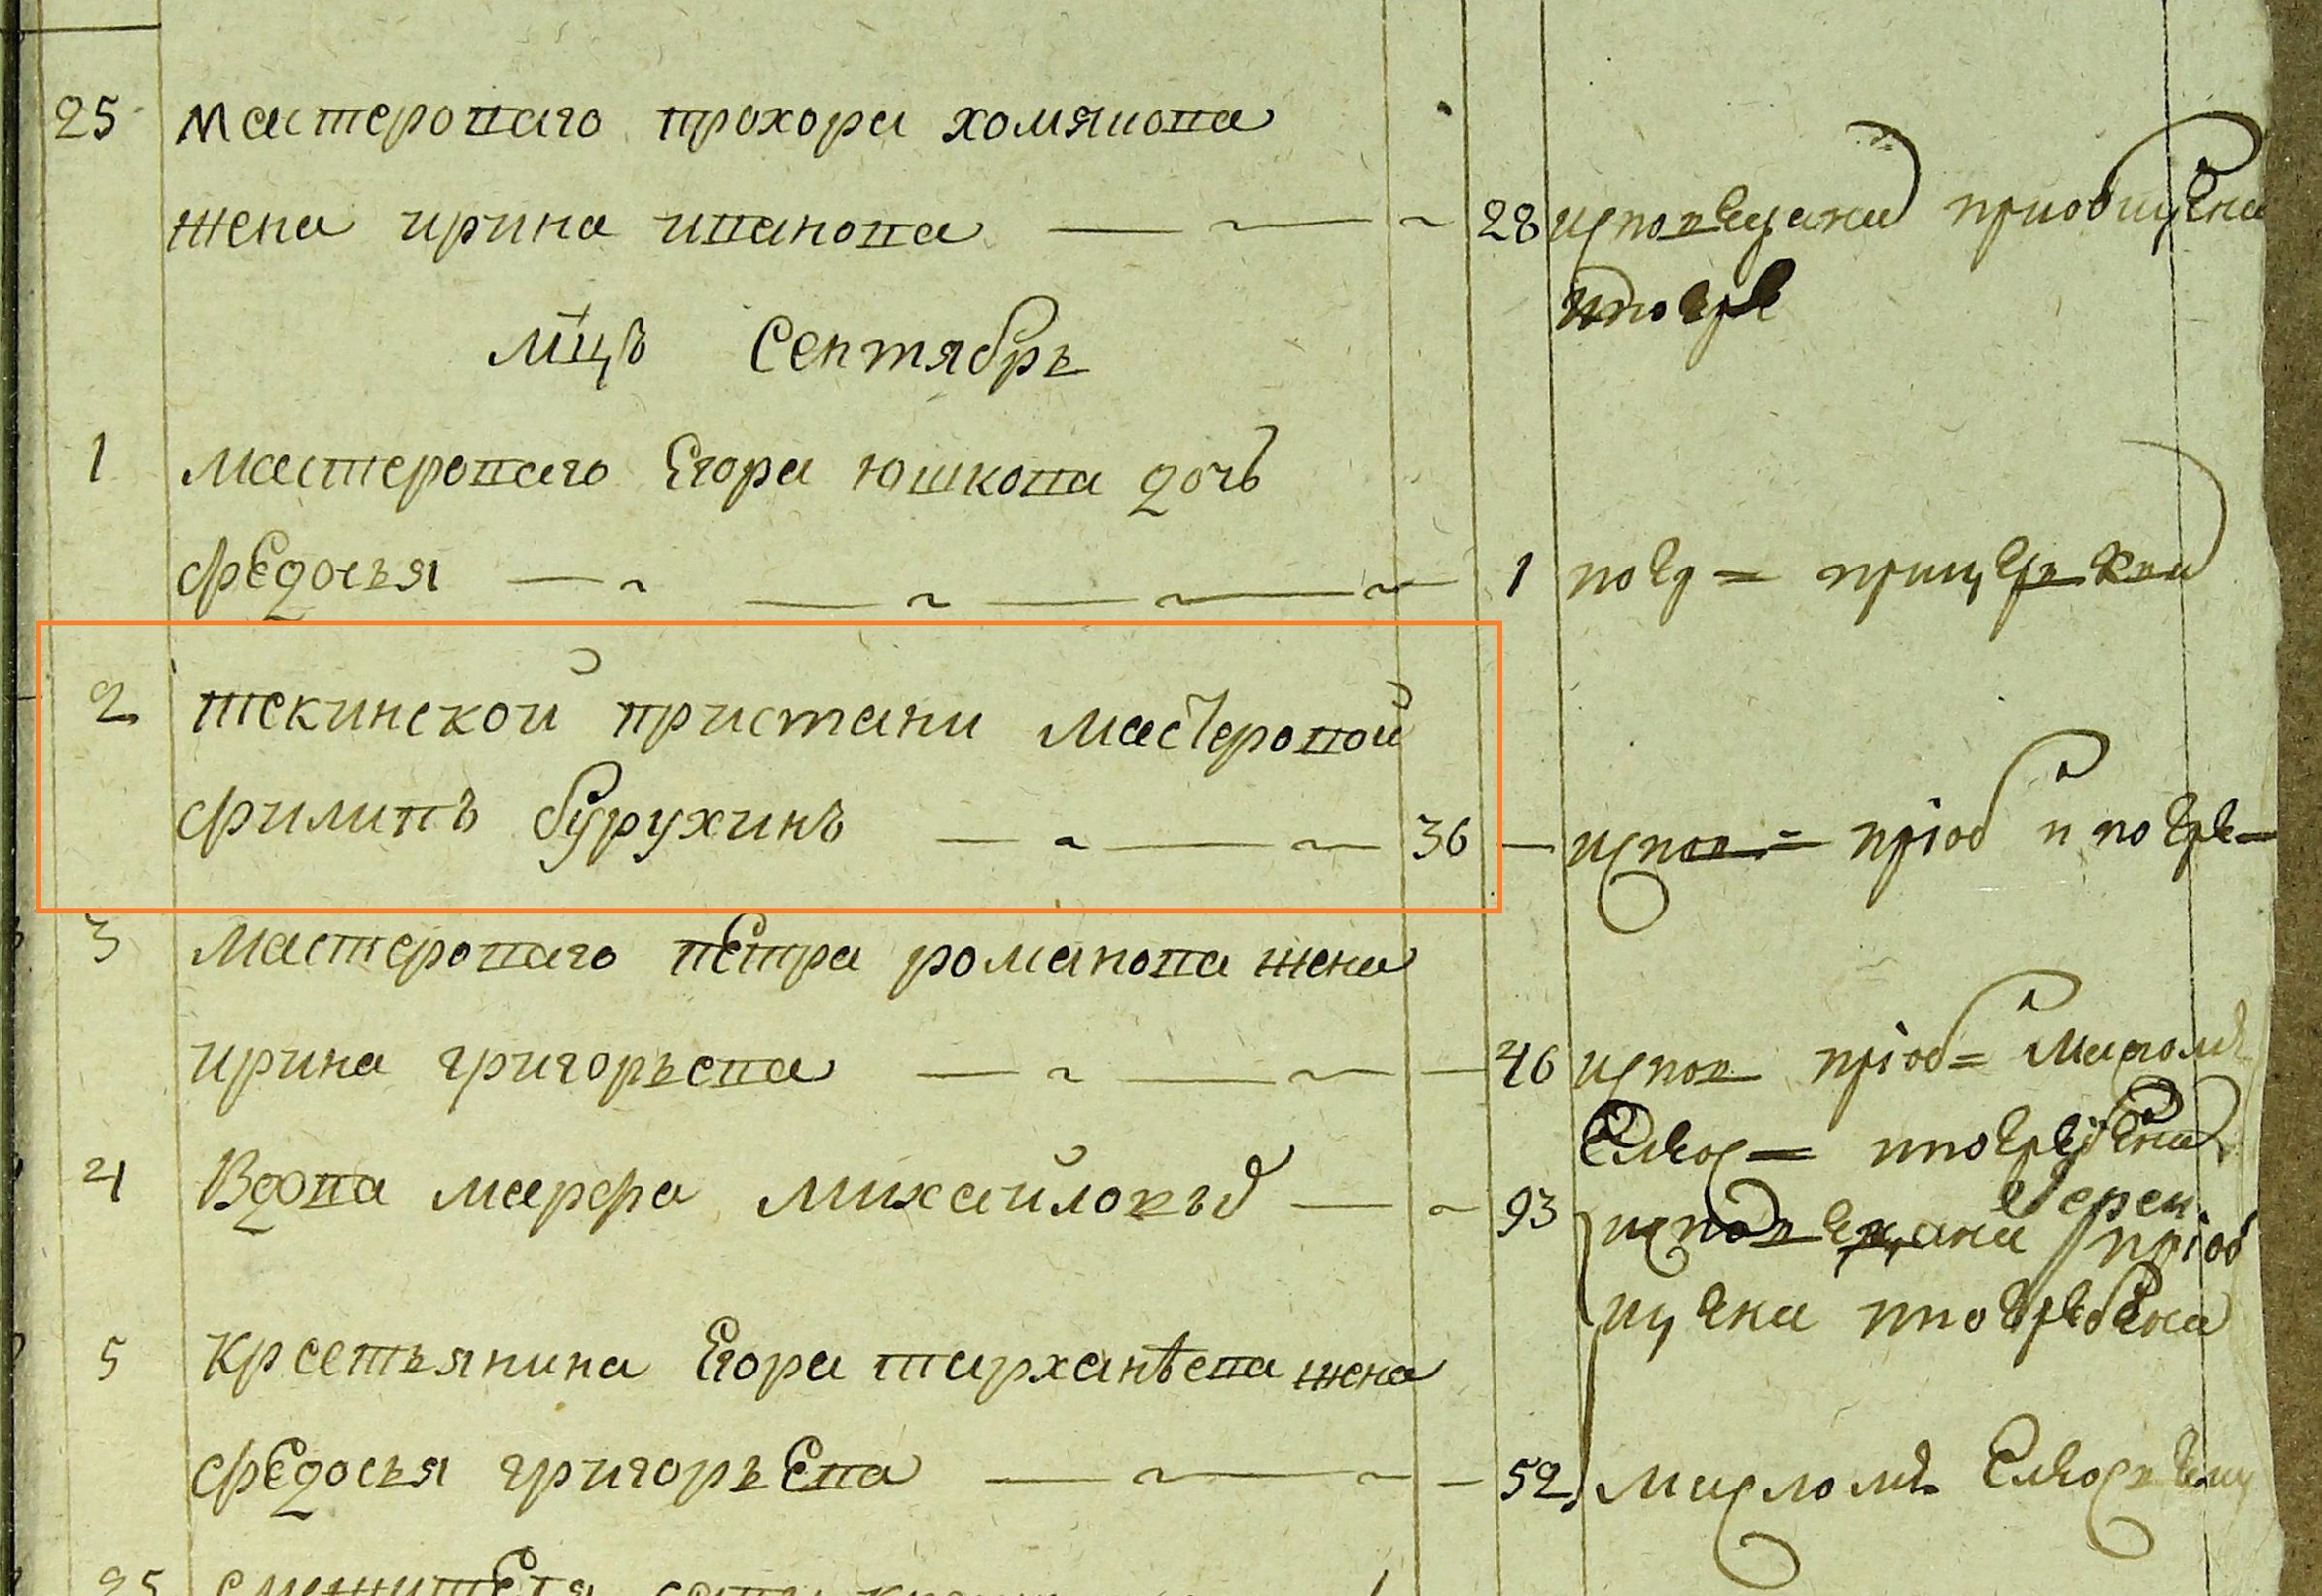 25 мастероваго прохора хомякова
жена ирина иванова 28 исповѣдана приобщена
и погре
мцъ Сентябрь
1 мастероваго Егора юшкова дочь
федосья 1 погр =
2 текинской пристани мастеровой
филипъ бурухинъ 36 испов = пріоб и погре
3 мастероваго петра романова жена
ирина григорьева 46 испов пріоб = маслом
Елеос = и погребена
4 Вдова марфа михайловъ 93 исповедана пріоб
щена и погребена
5 крестьянина Егора жена
федосья григорьева 52 масломъ Елеосвещ
25